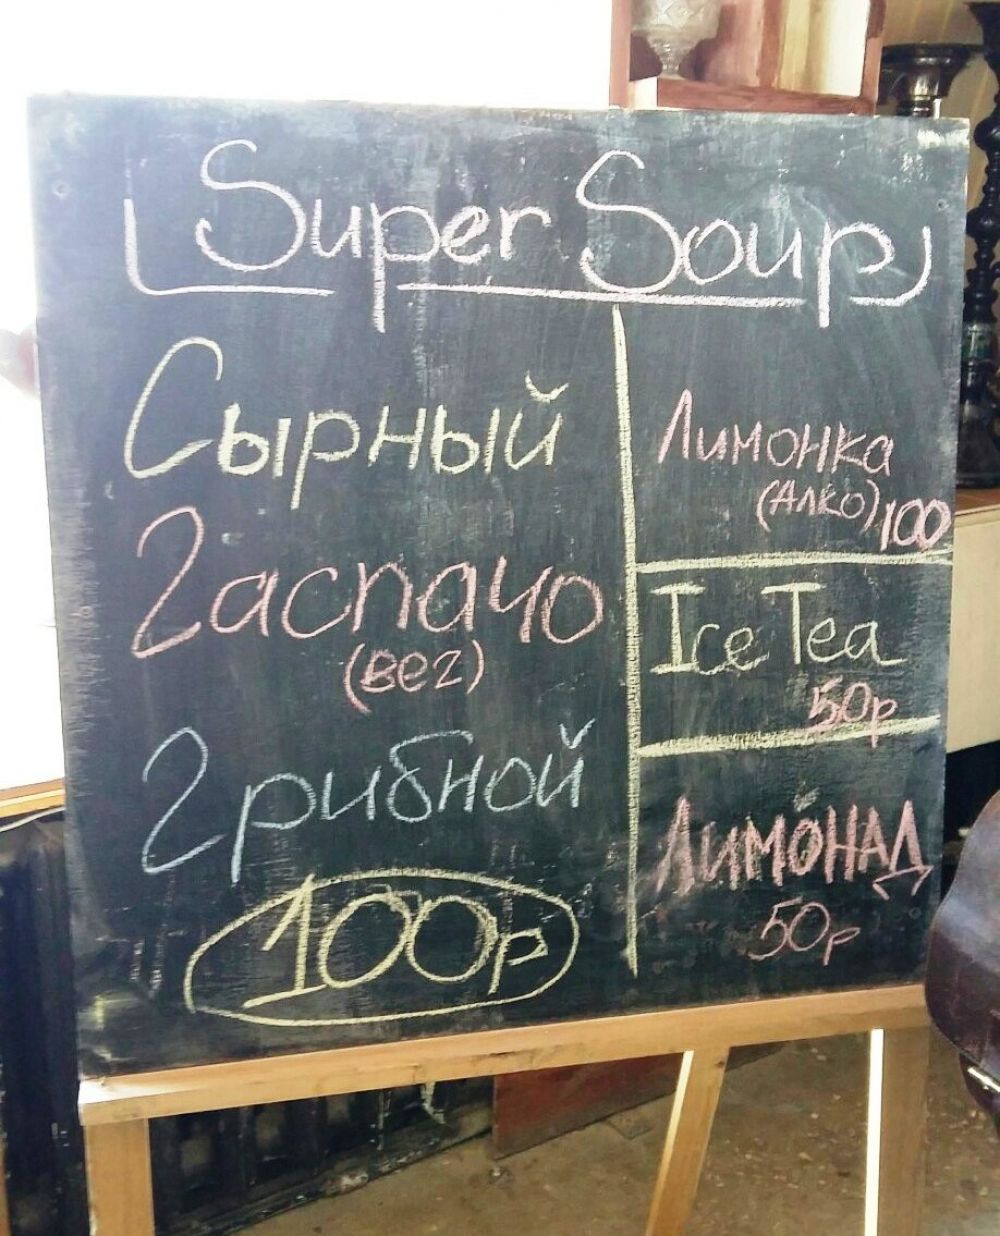 Super Soup
Сырный
Гаспачо
(вег)
Грибной
100р
Лимонка
(Алко) 100
Ice Tea
50р
Лимонад
50р